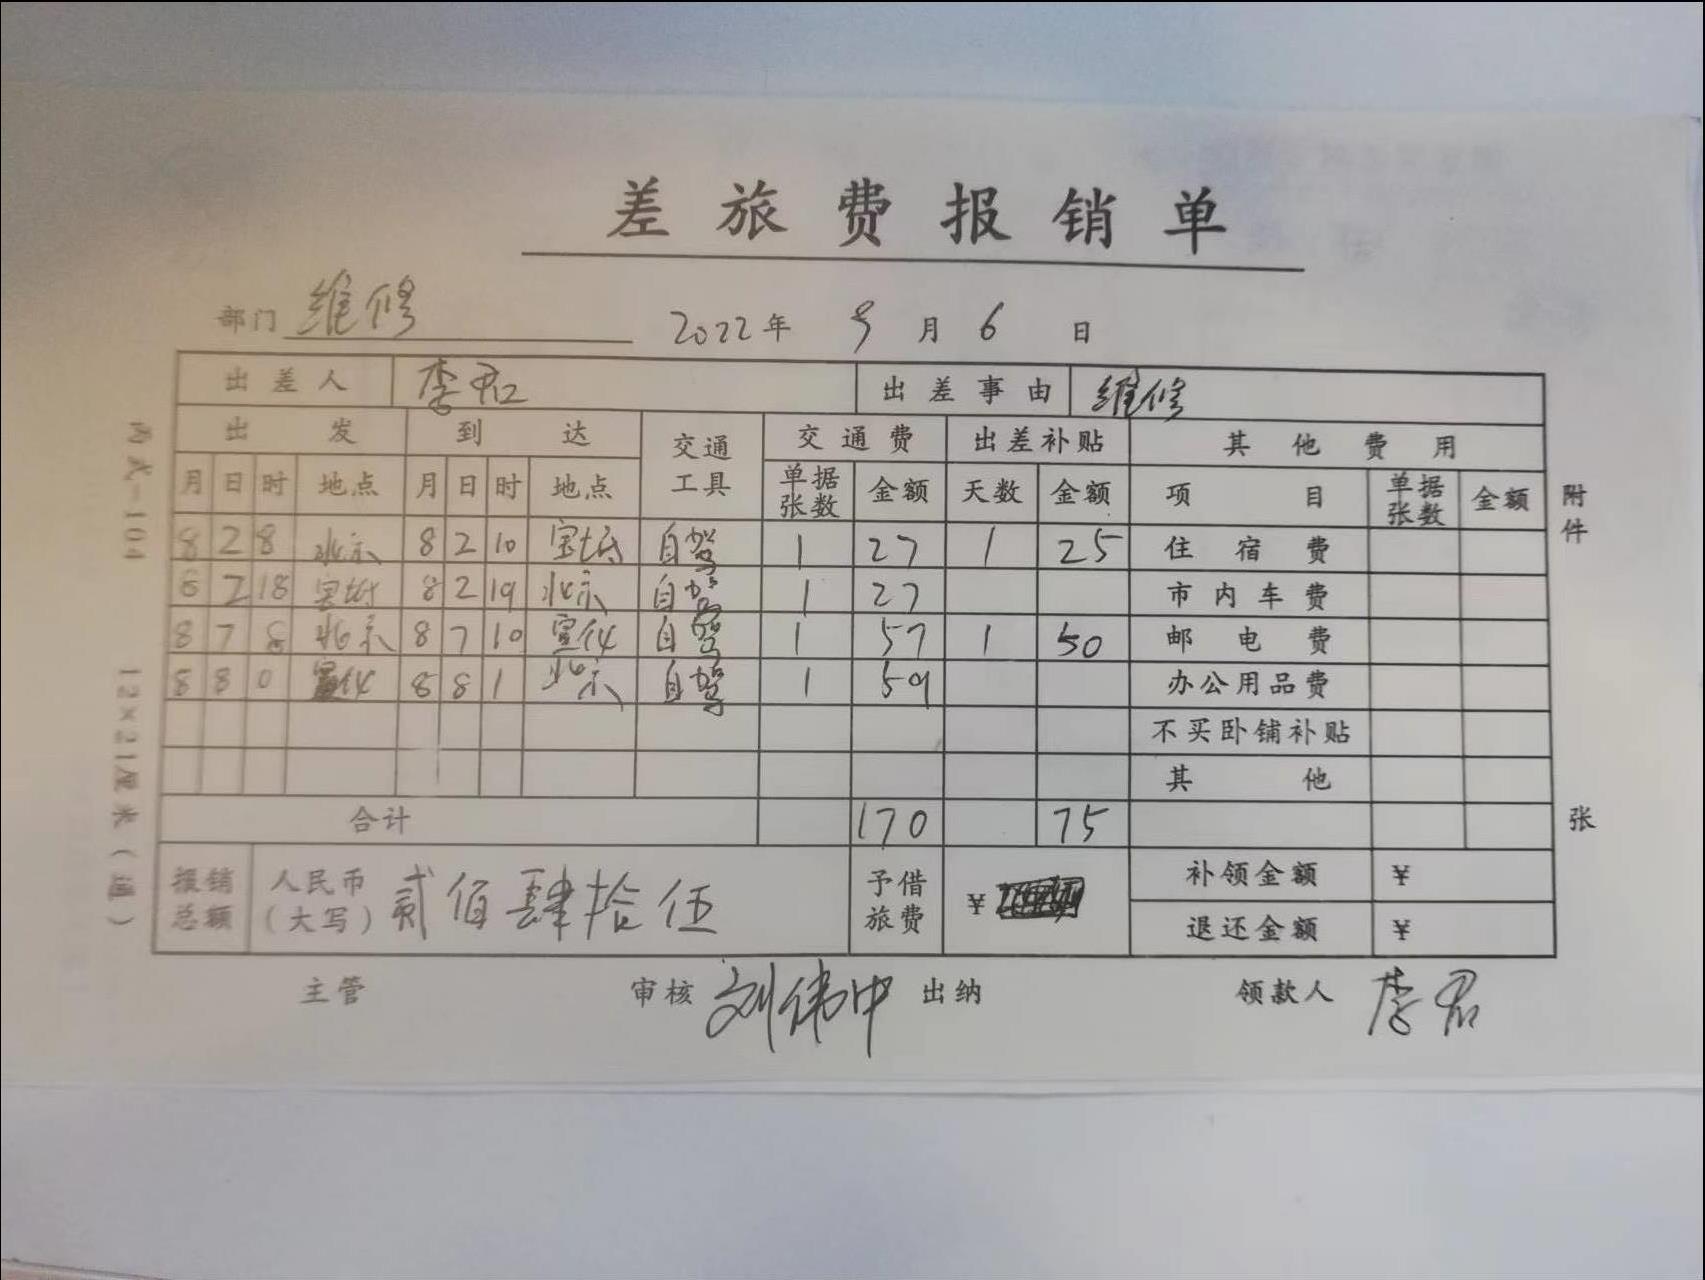 差旅费报销单
部门 维修 2022年 9月 6日
出差人 李君 出差事由 维修
出发 到达 交通工具 交通费 出差补贴 其他费用
月 日 时 地点 月 日 时 地点 单据张数 金额 天数 金额 项目 单据张数 金额
8 2 8 北京 8 2 10 宝坻 自驾 1 27 1 25 住宿费
8 2 18 宝坻 8 2 19 北京 自驾 1 27 市内车费
8 7 8 北京 8 7 10 宣化 自驾 1 57 1 50 邮电费
8 8 0 宣化 8 8 1 北京 自驾 1 59 办公用品费
不买卧铺补贴
其他
合计 170 75
报销总额 人民币（大写） 贰佰肆拾伍 予借旅费 ¥ 补领金额 ¥
退还金额 ¥
主管 审核 刘伟中 出纳 领款人 李君
附件 张
丙式-104 12×21厘米（通）